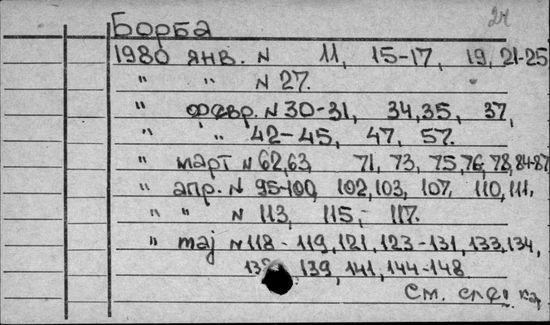 24
Борба
1980 янв. N 11, 15-17, 19, 21-25
" " N 27.
" февр. N 30-31, 34, 35, 37,
" " 42-45, 47, 57.
" март N 62, 63, 71, 73, 75, 76, 78, 84-87
" апр. N 95-100, 102, 103, 107, 110, 111,
" " N 113, 115, 117.
" maj N 118-119, 121, 123-131, 133, 134,
139, 141, 144-148
См. след. кар